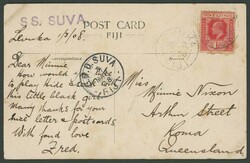 SS. SUVA
POST CARD
FIJI
Levuka
/08.
Dear Minnie
how would
to play hide &
this little black
Many thanks for your
letter & postcards
With fond love
Fred.
SUVA
Miss
Minnie Nixon
Arthur Street
Roma
Queensland